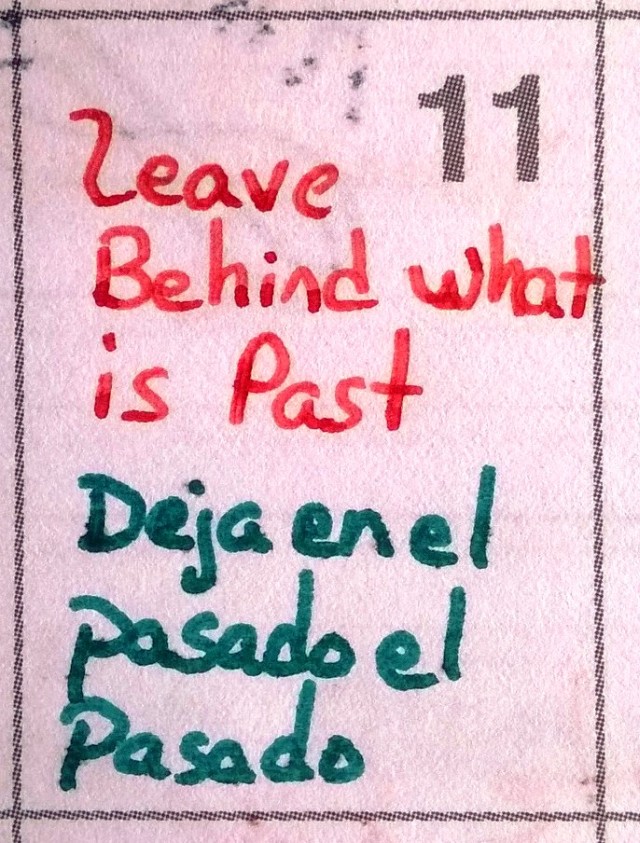 11
Leave
Behind what
is Past
Deja en el
pasado el
Pasado